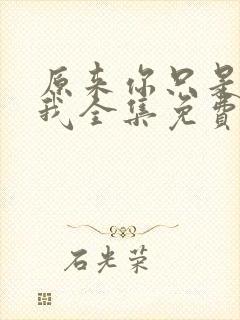 原来你只是
我全集免费
石光荣